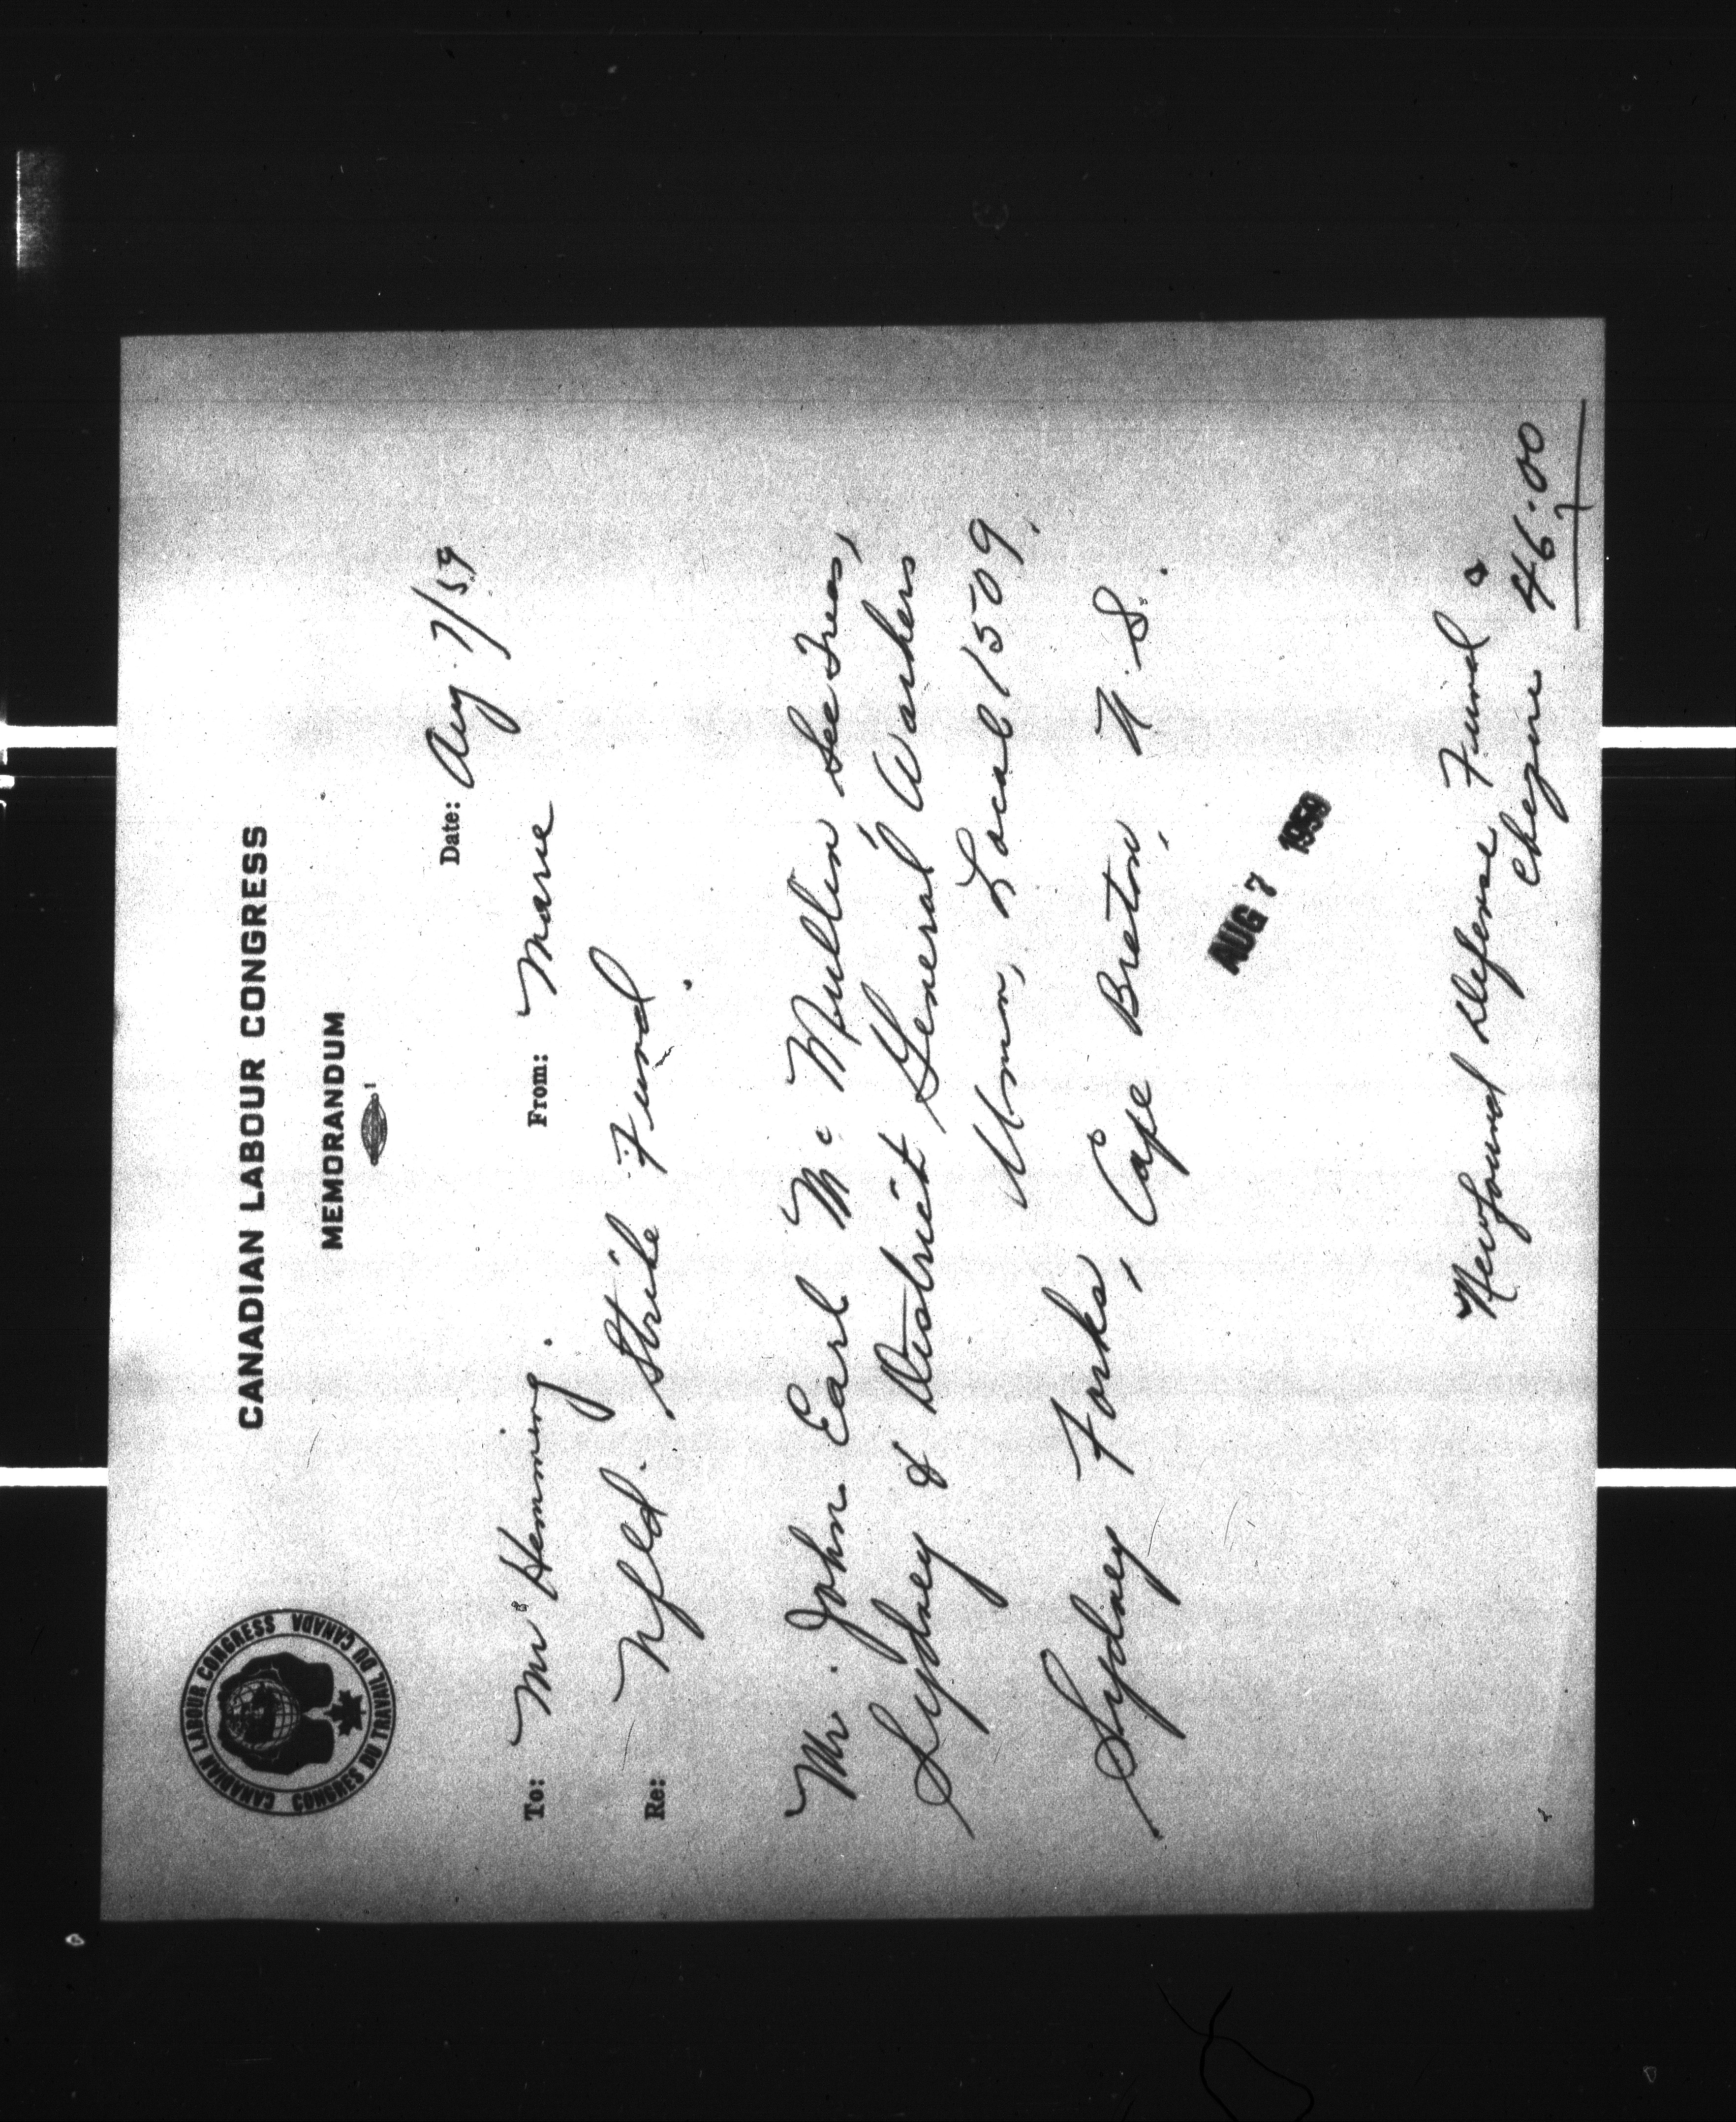 CANADIAN LABOUR CONGRESS
CONGRÈS DU TRAVAIL DU CANADA
CANADIAN LABOUR CONGRESS
MEMORANDUM
Date: Aug 7/59
To: Mr Hemming. From: Marie
Re: Nfld. Strike Fund.
Mr. John Earl McMullin Sec Treas,
Sydney & District General Workers
Union, Local 1509,
Sydney Forks, Cape Breton, N.S.
AUG 7 1959
Newfound Defense Fund
Cheque 46.00